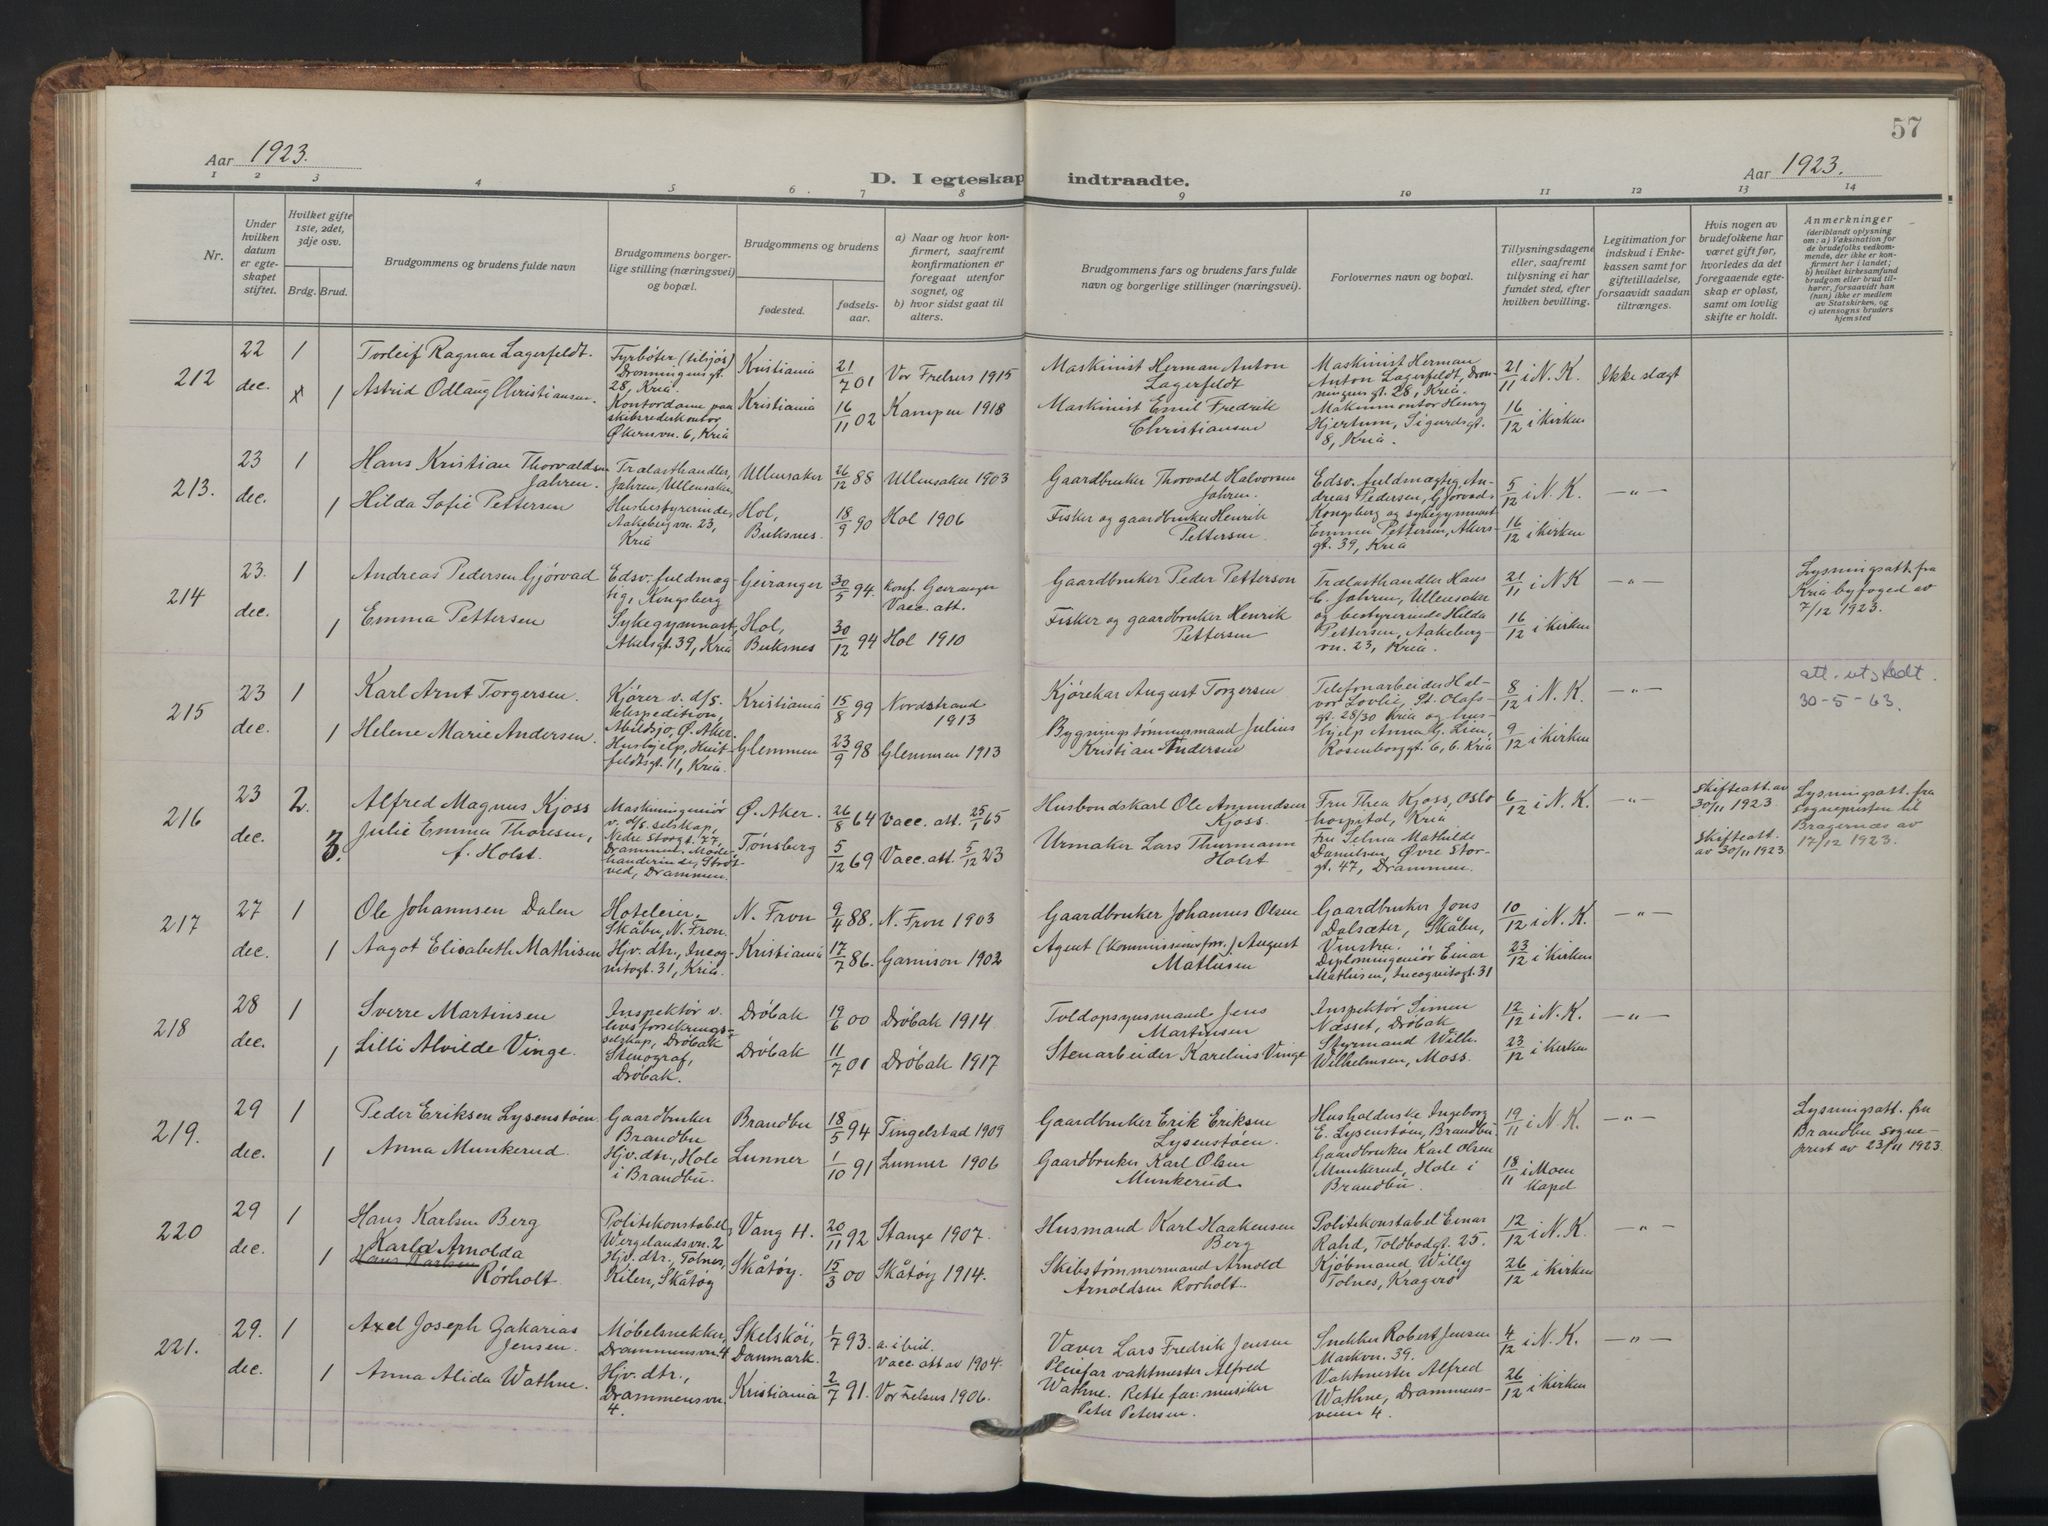 57
Aar 1923.
D. I egteskap indtraadte.
Aar 1923.
1 2 3 4 5 6. 7 8 9 10 11 12 13 14
Nr.
Under hvilken datum er egteskapet stiftet.
Hvilket gifte 1ste, 2det, 3dje osv.
Brdg. Brud.
Brudgommens og brudens fulde navn
Brudgommens borgerlige stilling (næringsvei) og bopæl.
Brudgommens og brudens
fødested.
fødselsaar.
a) Naar og hvor konfirmert, saafremt konfirmationen er foregaat utenfor sognet, og
b) hvor sidst gaat til alters.
Brudgommens fars og brudens fars fulde navn og borgerlige stillinger (næringsvei).
Forlovernes navn og bopæl.
Tillysningsdagene eller, saafremt tillysning ei har fundet sted, efter hvilken bevilling.
Legitimation for indskud i Enkekassen samt for giftetilladelse, forsaavidt saadan tiltrænges.
Hvis nogen av brudefolkene har været gift før, hvorledes da det foregaaende egteskap er opløst, samt om lovlig skifte er holdt.
Anmerkninger (deriblandt oplysning om: a) Vaksination for de brudefolks vedkommende, der ikke er konfirmert her i landet; b) hvilket kirkesamfund brudgom eller brud tilhører, forsaavidt han (hun) ikke er medlem av Statskirken, og c) utensogns bruders hjemsted
212
22 dec.
1
Torleif Ragnar Lagerfeldt.
Fyrbøter (tilsjøs) Dronningensgt. 28, Kria.
Kristiania
21/7 01
Vor Frelsers 1915
Maskinist Herman Anton Lagerfeldt
Maskinist Herman Anton Lagerfeldt, Dronningensgt. 28, Kria.
21/11 i N. K.
Ikke slegt
x 1
Astrid Odlaug Christiansen.
Kontordame paa skibsrederkontor Økernvn. 6, Kria
Kristiania
16/11 02
Kampen 1918
Maskinist Emil Fredrik Christiansen
Makinmontør Henry Hjertum, Sigurdsgt. 8, Kria.
16/12 i kirken
213.
23 dec.
1
Hans Kristian Thorvaldsen Jahren.
Trælasthandler, Jahren, Ullensaker,
Ullensaker
26/12 88
Ullensaker 1903
Gaardbruker Thorvald Halvorsen Jahren.
Edsv. fuldmægtig Andreas Pedersen, Gjørvad, Kongsberg og sykegymnast Emma Pettersen, Akersgt. 39, Kria
5/12 i N. K.
— „ —
1
Hilda Sofie Pettersen
Husbestyrerinde, Aakebergvn. 23, Kria
Hol, Buksnes.
18/9 90
Hol 1906
Fisker og gaardbruker Henrik Pettersen.
16/12 i kirken
214
23. dec.
1
Andreas Pedersen Gjørvad
Edsv. fuldmægtig, Kongsberg
Geiranger
30/5 94.
konf. Geiranger Vacc. att.
Gaardbruker Peder Petterson
Trælasthandler Hans C. Jahren, Ullensaker og bestyrerinde Hilda Pettersen, Aakebergvn. 23, Kria.
21/11 i N. K
— „ —
Lysningsatt. fra Kria byfoged av 7/12 1923.
1
Emma Pettersen
Sykegymnast, Akersgt. 39, Kria
Hol, Buksnes
30/12 94
Hol 1910
Fisker og gaardbruker Henrik Pettersen
16/12 i kirken
215
23 dec.
1
Karl Arnt Torgersen.
Kjører v. d/s. ekspedition, Abildsjø, Ø. Aker.
Kristiania
15/8 99
Nordstrand 1913
Kjørekar August Torgersen
Telefonarbeider Halvor Lovlie, St. Olafsgt. 28/30 Kria og hushjelp Anna G. Lien, Rosenborggt. 6, b. Kria
8/12 i N. K.
— „ —
att. utstedt. 30-5-63.
1
Helene Marie Andersen.
Hushjelp, Huitfeldtsgt. 11, Kria.
Glemmen
23/9 98
Glemmen 1913
Bygningstømmermand Julius Kristian Andersen
9/12 i kirken
216
23 dec.
2.
Alfred Magnus Kjoss
Maskiningeniør v. d/s. selskap, Nedre Storgt. 77, Drammen.
Ø. Aker.
26/8 64
Vacc. att. 25/1 65
Husbondskarl Ole Amundsen Kjoss.
Fru Thea Kjoss, Oslo hospital, Kria
6/12 i N. K.
— „ —
Skifteatt. av 30/11 1923.
Lysningsatt. fra sognepresten til Bragernæs av 17/12 1923.
3.
Julie Emma Thoresen, f. Holst.
Modehandlerinde, Strøtved, Drammen.
Tønsberg
5/12 69
Vacc. att. 5/12 23
Urmaker Lars Thurmann Holst
Fru Selma Mathilde Danielsen Øvre Storgt. 47, Drammen.
Skifteatt. av 30/11 1923
217
27 dec.
1
Ole Johannsen Dalen
Hoteleier. Skåbu, N. Fron.
N. Fron
9/4 88
N. Fron 1903
Gaardbruker Johannes Olsen
Gaardbruker Jons Dalsæter, Skåbu, Vinstra.
10/12 i N. K.
— „ —
1
Aagot Elisabeth Mathisen
Hjv. dtr., Incognitogt. 31, Kria.
Kristiania
17/7 86.
Garnison 1902
Agent (Kommissionsforr.) August Mathisen
Diplomingeniør Einar Mathisen, Incognitogt. 31
23/12 i kirken
218
28 dec.
1
Sverre Martinsen
Inspektør v. livsforsikringsselskap, Drøbak
Drøbak
19/6 00
Drøbak 1914.
Toldopsynsmand Jens Martinsen
Inspektør Simen Næsset, Drøbak
12/12 i N. K.
— „ —
1
Lilli Alvilde Vinge.
Stenograf, Drøbak.
Drøbak
11/7 01
Drøbak 1917
Stenarbeider Karelius Vinge
Styrmand Wilh. Wilhelmsen, Moss.
23/12 i kirken
219.
29 dec.
1
Peder Eriksen Lysenstøen
Gaardbruker Brandbu
Brandbu
18/5 94
Tingelstad 1909
Gaardbruker Erik Eriksen Lysenstøen.
Husholderske Ingeborg E. Lysenstøen, Brandbu.
19/11 i N. K.
— „ —
Lysningsatt. fra Brandbu sogneprest av 23/11 1923.
1
Anna Munkerud.
Hjv. dtr., Hole i Brandbu.
Lunner
1/10 91
Lunner 1906
Gaardbruker Karl Olsen Munkerud
Gaardbruker Karl Olsen Munkerud, Hole i Brandbu.
18/11 i Moen Kapel
220
29 dec.
1
Hans Karlsen Berg
Politikonstabel, Wergelandsvn. 2
Vang H.
20/11 92
Stange 1907.
Husmand Karl Haakensen Berg
Politikonstabel Einar Rahd, Toldbodgt. 25.
12/12 i N. K.
— „ —
1
Karla Arnolda
Hans Karlsen
Rørholt
Hjv. dtr., Tobnes, Kilen, Skåtøy
Skåtøy.
15/3 00
Skåtøy 1914.
Skibstømmermand Arnold Arnoldsen Rorholt.
Kjøbmand Willy Tolnes, Kragerø
26/12 i kirken
221.
29. dec.
1
Axel Joseph Zakarias Jensen.
Møbelsnekker, Drammensvn. 4
Skelskör, Danmark.
1/7 93.
a. ibid. Vacc. att av 1904.
Væver Lars Fredrik Jensen
Snekker Robert Jensen Markvn. 39.
4/12 i N. K.
— „ —
1
Anna Alida Wathne.
Hjv. dtr., Drammensvn. 4.
Kristiania
2/7 91.
Vor Frelsers 1906.
Pleiefar vaktmester Alfred Wathne. Rette far: musiker Peter Petersen.
Vaktmester Alfred Wathne, Drammensveien 4.
26/12 i kirken